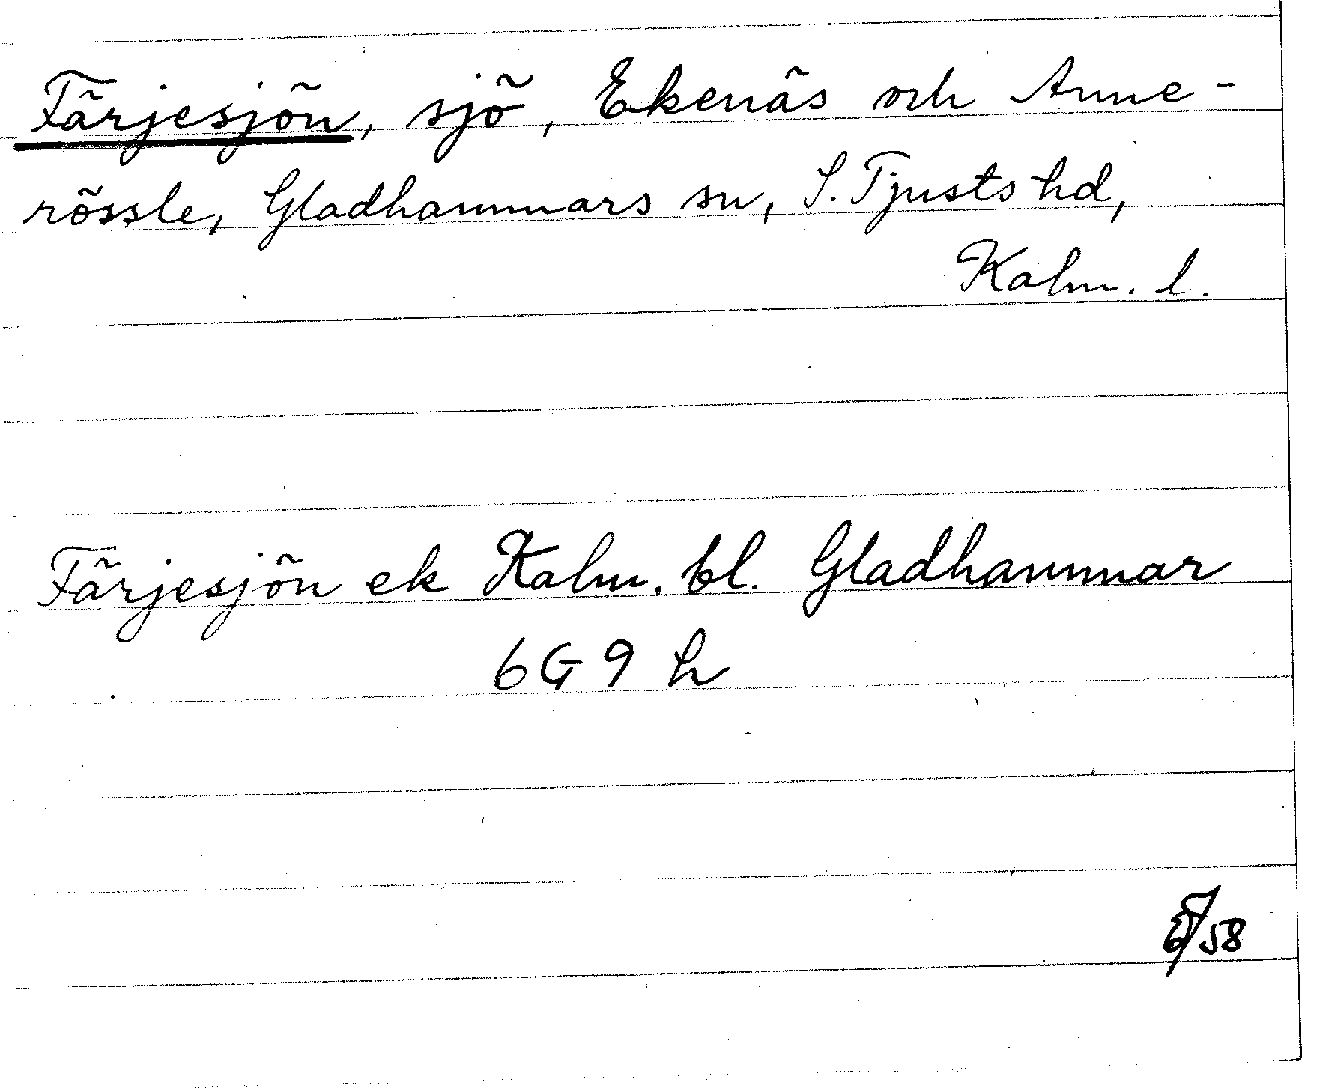 Färjesjön, sjö, Ekenäs och Anne-
rössle, Gladhammars sn, S. Tjusts hd,
Kalm. l.
Färjesjön ek Kalm. bl. Gladhammar
6G 9 h
/58